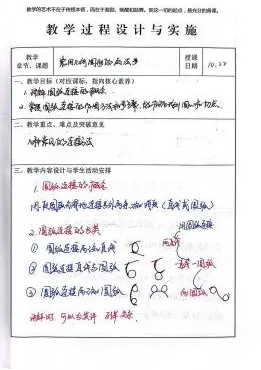 教学的艺术不在于传授本领，而在于激励、唤醒和鼓舞。而这一切的起点，是充分的备课。
教学过程设计与实施
教学
章节、课题
常用几何图形的画法
授课
日期
10.22
一、教学目标（对授课标，指向核心素养）
1. 理解圆弧连接的概念
2. 掌握圆弧连接的作图方法和步骤，
二、教学重点、难点及突破意见
圆弧连接的画法
三、教学内容设计与学生活动安排
1. 圆弧连接的概念
用已知圆弧光滑地连接另外两条已知线段（直线或圆弧）
2. 圆弧连接的分类
用圆弧连接
① 圆弧连接两已知直线
两直线
② 圆弧连接直线与圆弧
直线一圆弧
③ 圆弧连接两已知圆弧
两圆弧
讲解时 可以先